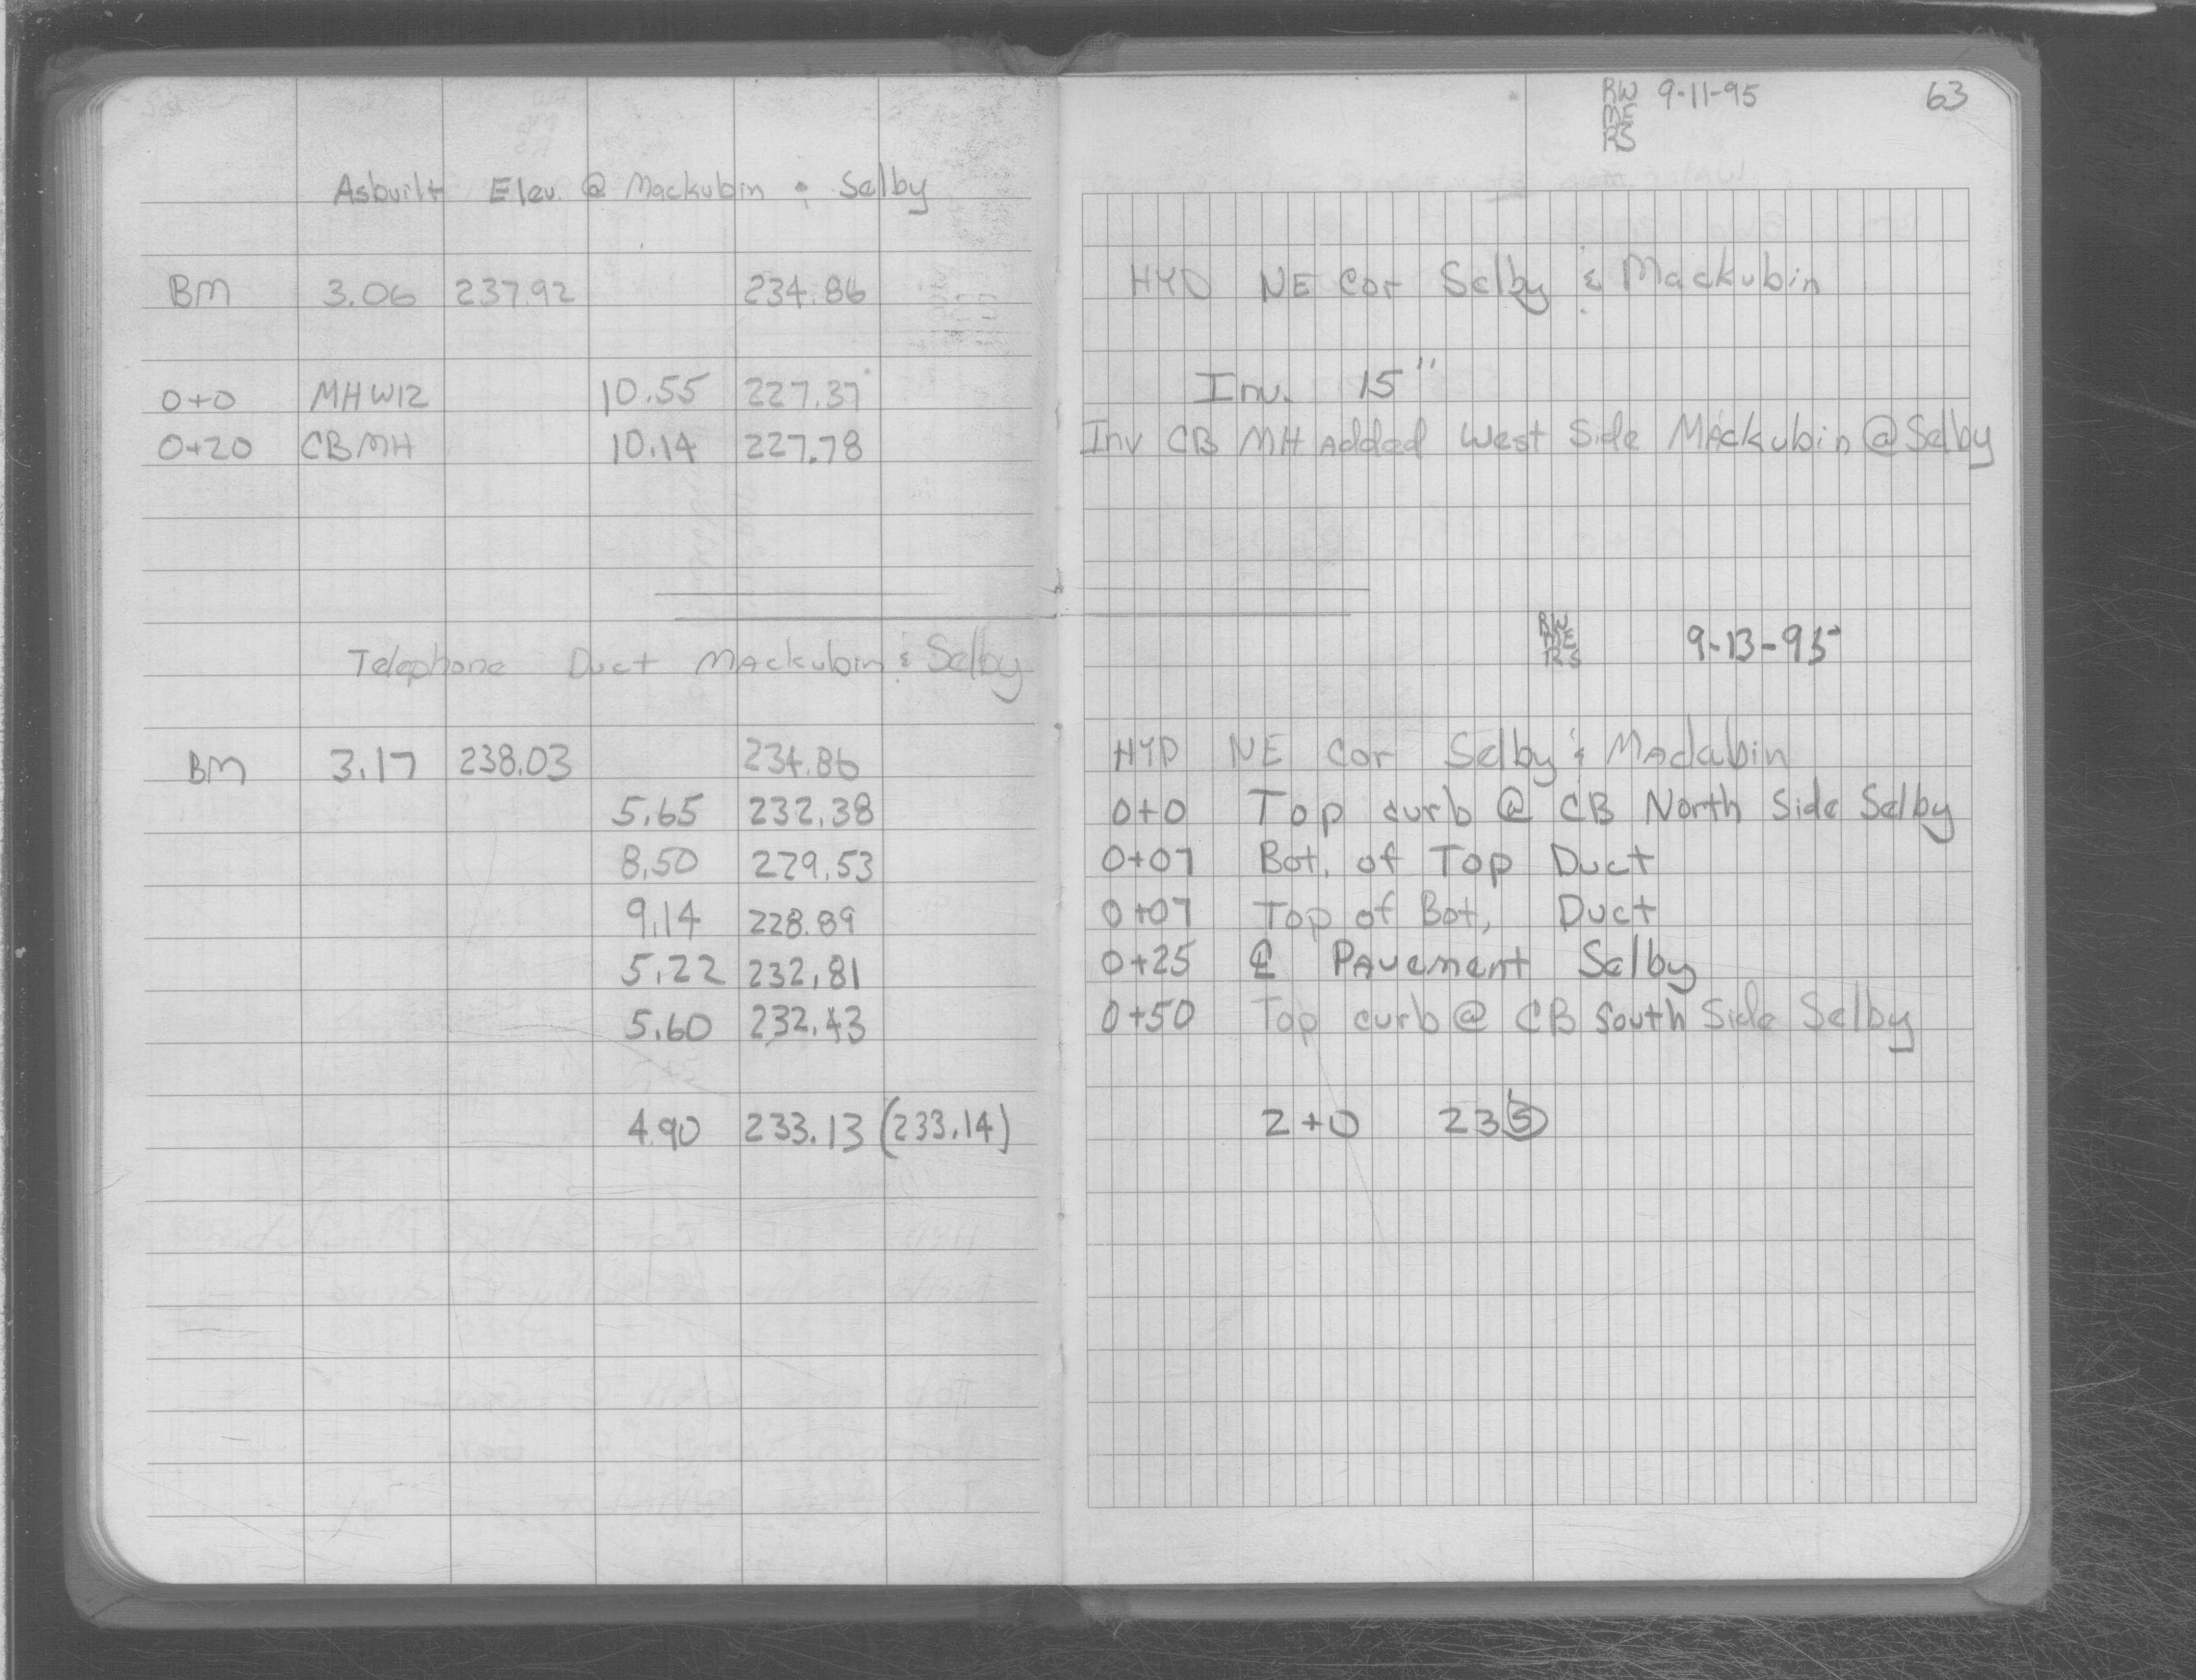 RW 9-11-95 63
ME
RS
Asbuilt Elev. @ Mackubin & Selby
BM 3.06 237.92 234.86 HYD NE Cor Selby & Mackubin
0+0 MHW12 10.55 227.37 Inv. 15"
0+20 CBMH 10.14 227.78 Inv CB MH Added West Side Mackubin @ Selby
RW 9-13-95
ME
RS
Telephone Duct Mackubin & Selby
BM 3.17 238.03 234.86 HYD NE Cor Selby & Mackubin
5.65 232.38 0+0 Top curb @ CB North Side Selby
8.50 229.53 0+07 Bot. of Top Duct
9.14 228.89 0+07 Top of Bot. Duct
5.22 232.81 0+25 ℄ Pavement Selby
5.60 232.43 0+50 Top curb @ CB South Side Selby
4.90 233.13 (233.14) 2+0